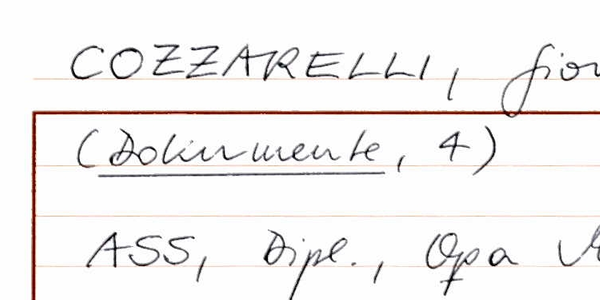 COZZARELLI, Gio
(Dokumente, 4)
ASS, Dipl., Opa